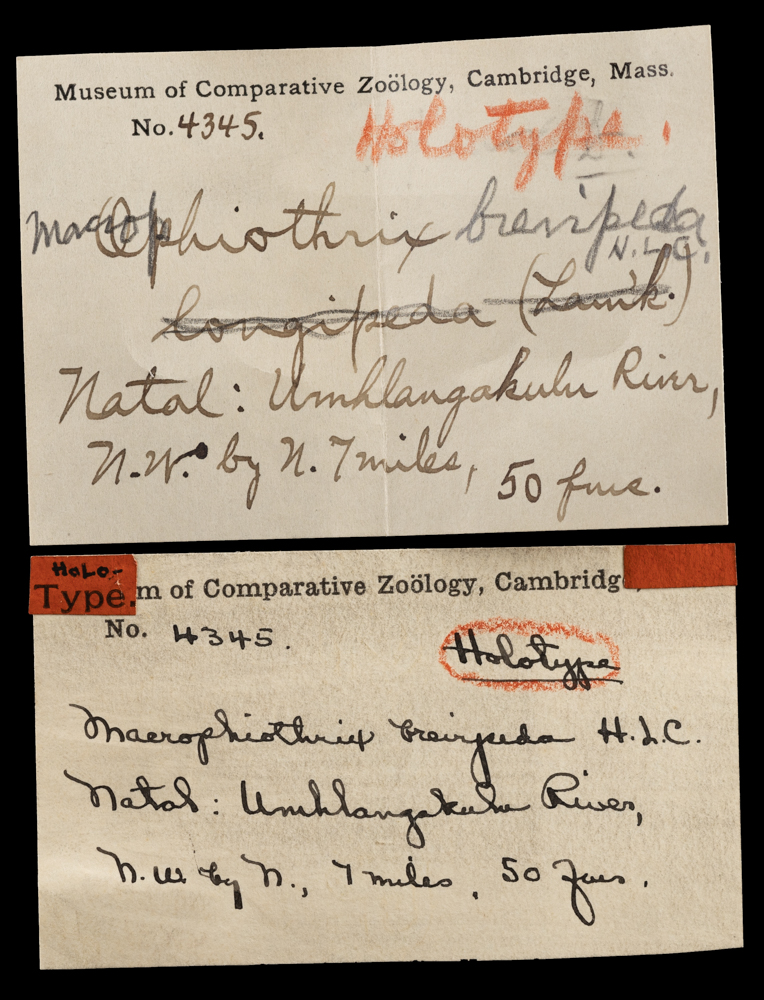 Museum of Comparative Zoölogy, Cambridge, Mass.
No. 4345.
Holotype.
Macrophiothrix brevipeda
H.L.C.
longipeda (Lamk.)
Natal: Umhlangakulu River,
N.W. by N. 7 miles, 50 fms.
HoLo-
Type.
m of Comparative Zoölogy, Cambridg
No. 4345.
Holotype
Macrophiothrix brevipeda H.L.C.
Natal: Umhlangakulu River,
N.W. by N., 7 miles, 50 fms.